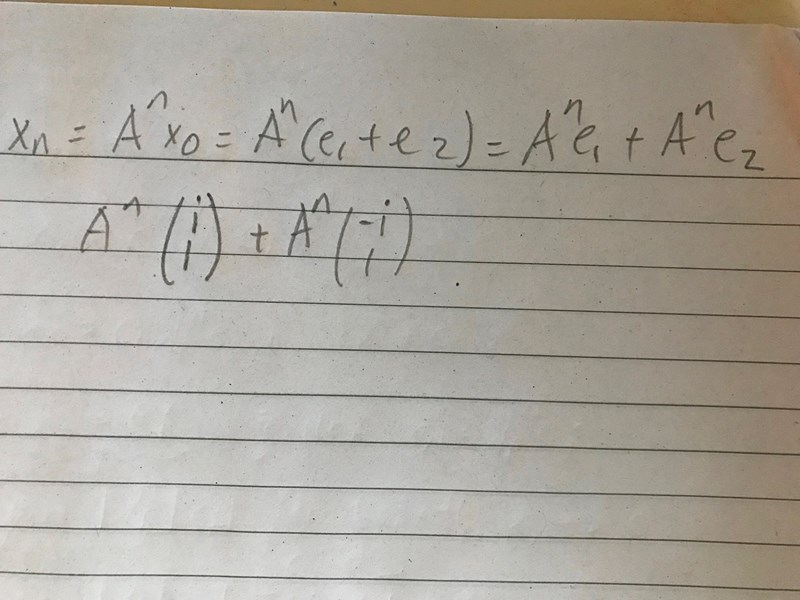 xₙ = Aⁿ x₀ = Aⁿ (e₁ + e₂) = Aⁿe₁ + Aⁿe₂
Aⁿ (i 1) + Aⁿ (-i 1)